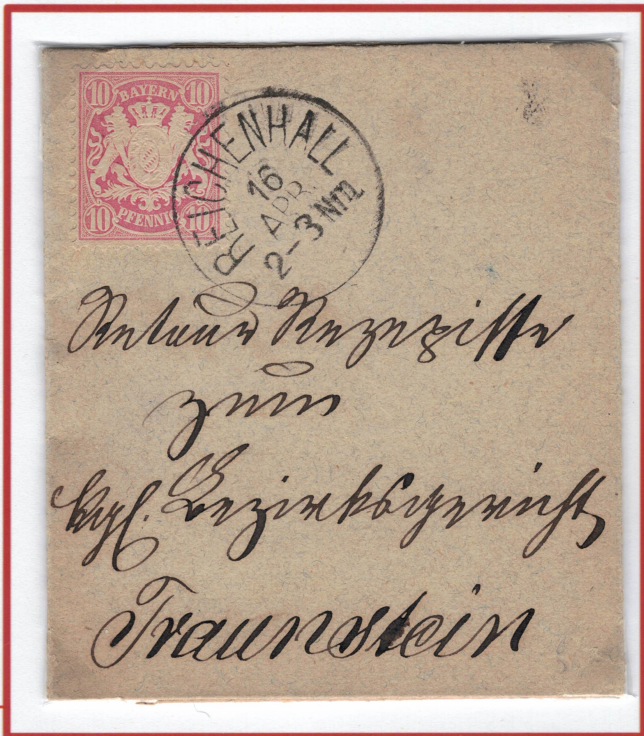 10 BAYERN 10
10 PFENNIG 10
REICHENHALL
16
APR
2-3 Nm
Retour Rezepisse
zum
kgl. Bezirksgericht
Traunstein